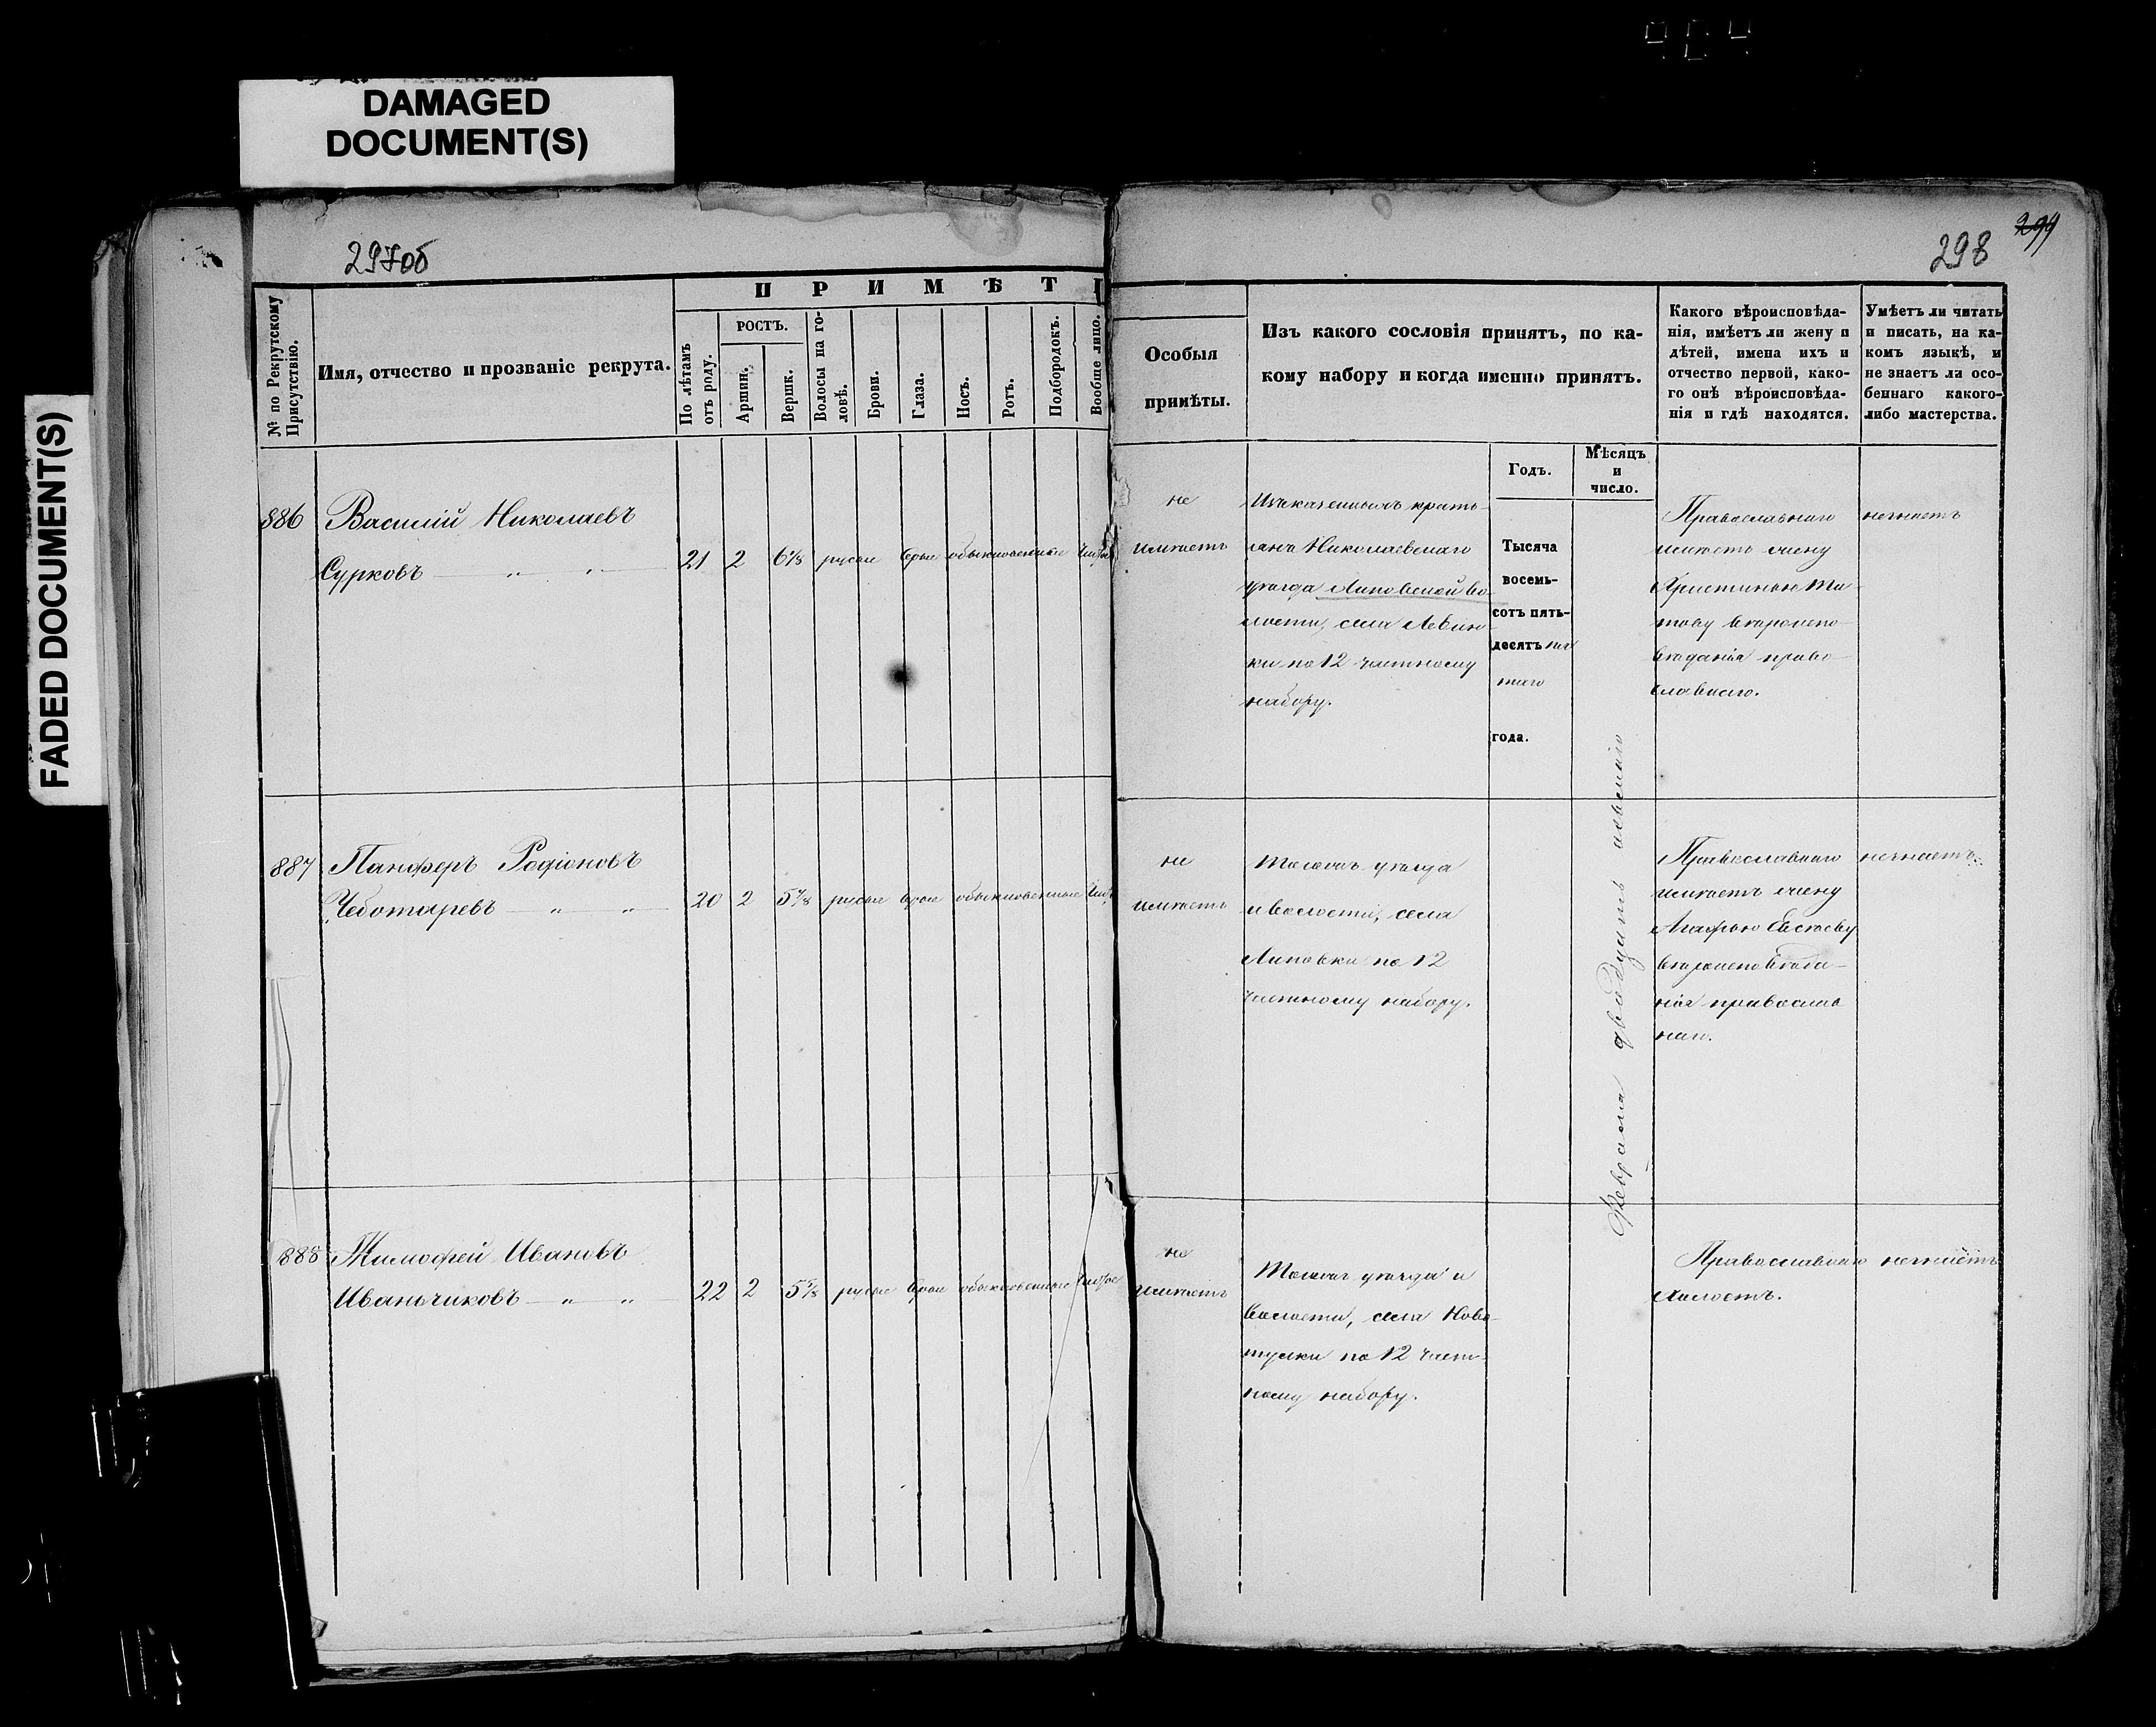 DAMAGED
DOCUMENT(S)
FADED DOCUMENT(S)
297об
298
299
№ по Рекрутскому
Присутствію.
Имя, отчество и прозваніе рекрута.
ПРИМѢТ
По лѣтамъ
отъ роду.
РОСТЪ.
Аршин.
Вершк.
Волосы на го-
ловѣ.
Брови.
Глаза.
Носъ.
Ротъ.
Подбородокъ.
Вообще лицо.
Особыя
примѣты.
Изъ какого сословія принятъ, по ка-
кому набору и когда именно принятъ.
Годъ.
Мѣсяцъ
и
число.
Какого вѣроисповѣда-
нія, имѣетъ ли жену и
дѣтей, имена ихъ и
отчество первой, како-
го онѣ вѣроисповѣда-
нія и гдѣ находятся.
Умѣетъ ли читать
и писать, на ка-
комъ языкѣ, и
не знаетъ ли осо-
беннаго какого-
либо мастерства.
886
Василій Николаевъ
Сурковъ — „ — „ —
21 2 6⅛ русые сѣрые обыкновенные
не
имѣетъ
Изъ казенныхъ кресть-
янъ Николаевскаго
уѣзда Липовской во-
лости, села Левин-
ки по 12 частному
набору.
Тысяча
восемь-
сотъ пять-
десятъ пя
таго
года.
Февраля двадцать
Православнаго
имѣетъ жену
Христинью Ти
тову вѣроиспо-
вѣданія право-
славнаго.
незнаетъ
887
Панферъ Родіоновъ
Чеботаревъ — „ — „ —
20 2 5⅞ русые сѣрые обыкновенные
не
имѣетъ
Тогожъ уѣзда
и волости, села
Липовки по 12
частному набору.
Православнаго
имѣетъ жену
Агафью
вѣроисповѣда-
нія православ
наго.
незнаетъ.
888
Тимофей Ивановъ
Иваньчиковъ — „ — „ —
22 2 русые сѣрые обыкновенные чистое
не
имѣетъ
Тогожъ уѣзда и
волости, села Ново-
тулки по 12 част-
ному набору.
Православнаго
холостъ.
незнаетъ